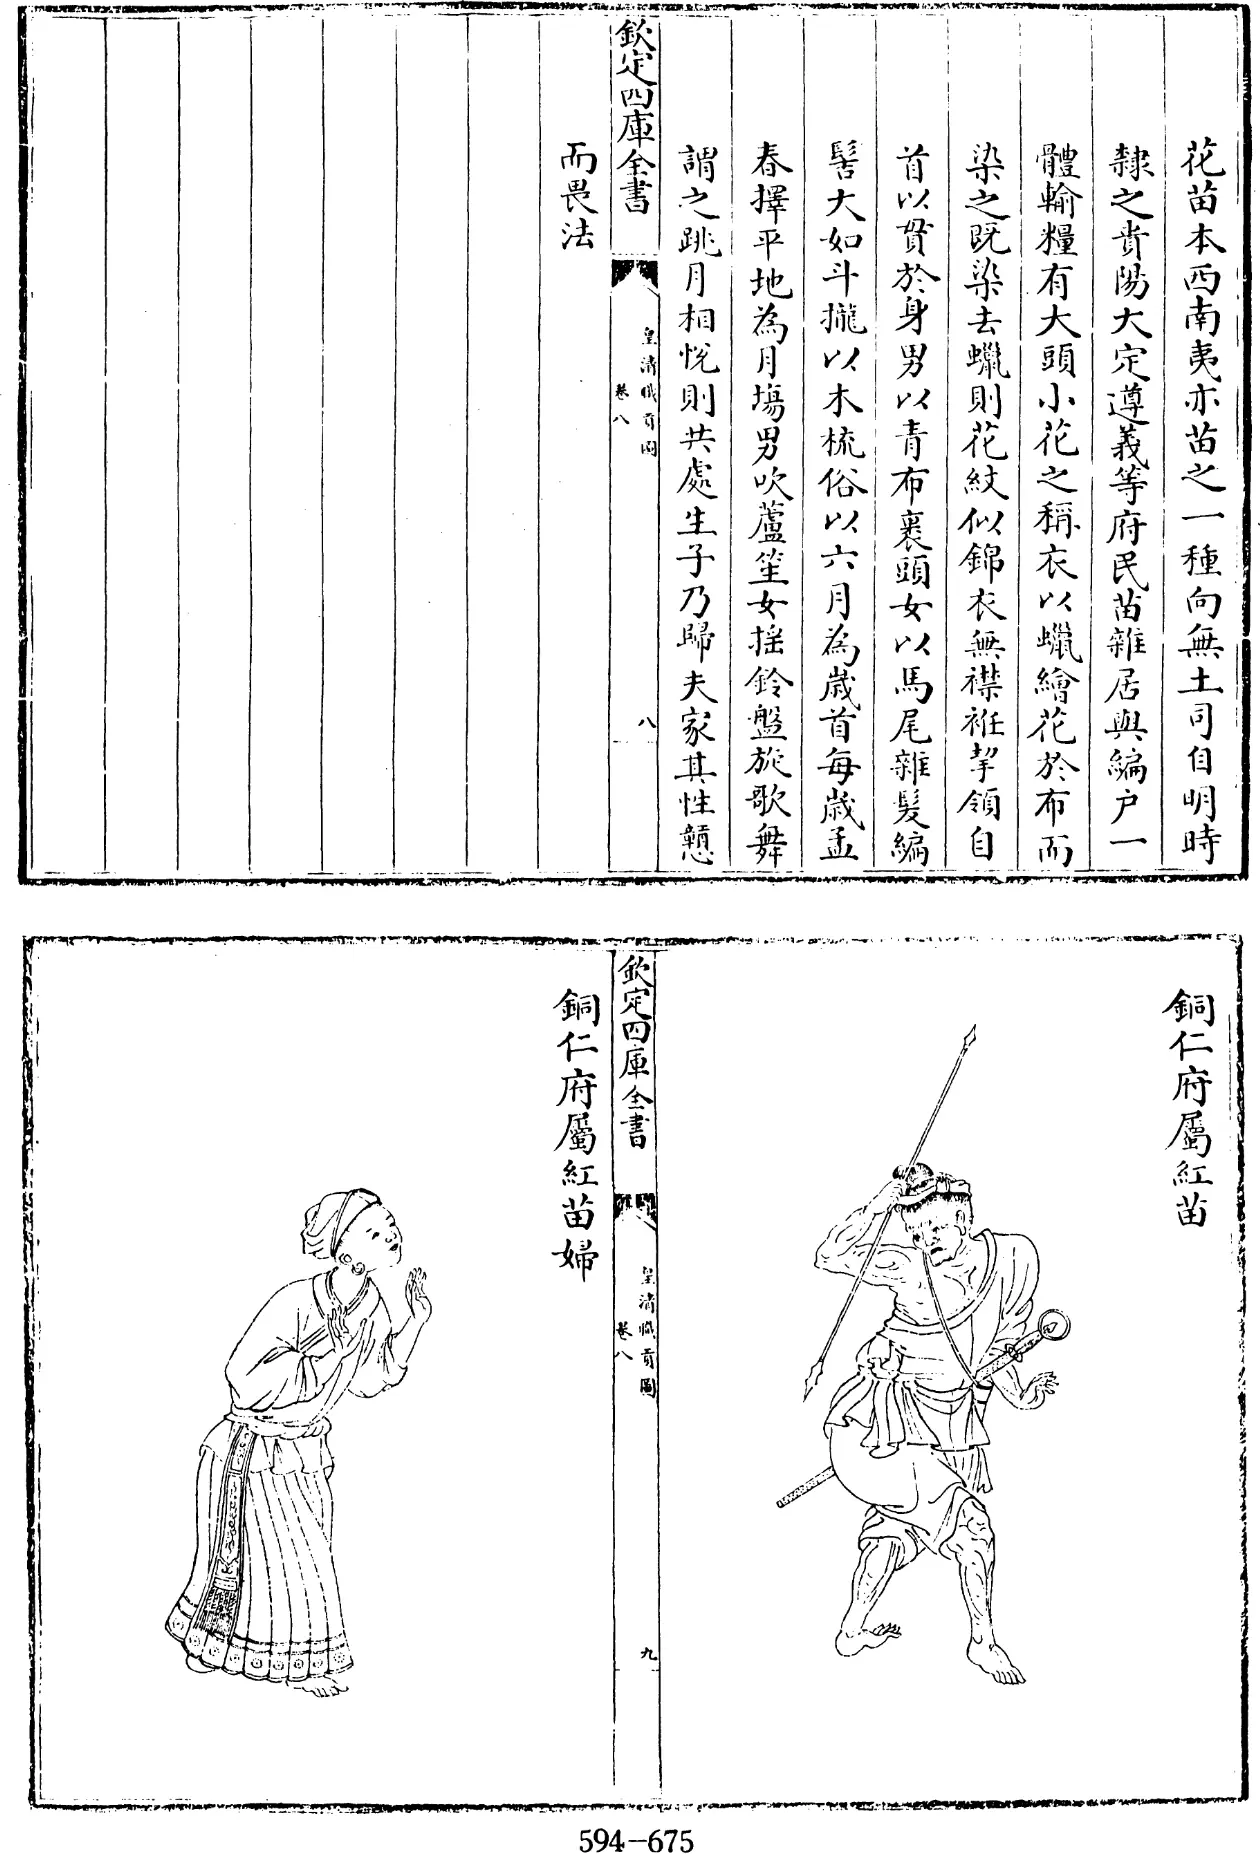 花苗本西南夷亦苗之一種向無土司自明時
隸之貴陽大定遵義等府民苗雜居與編户一
體輸糧有大頭小花之稱衣以蠟繪花於布而
染之既染去蠟則花紋似錦衣無襟袵挈領自
首以貫於身男以青布裹頭女以馬尾雜髮編
髻大如斗攏以木梳俗以六月為歲首每歲孟
春擇平地為月塲男吹蘆笙女揺鈴盤旋歌舞
謂之跳月相悅則共處生子乃歸夫家其性戇
欽定四庫全書
皇清職貢圖
卷八
八
而畏法
銅仁府屬紅苗
欽定四庫全書
皇清職貢圖
卷八
九
銅仁府屬紅苗婦
594-675